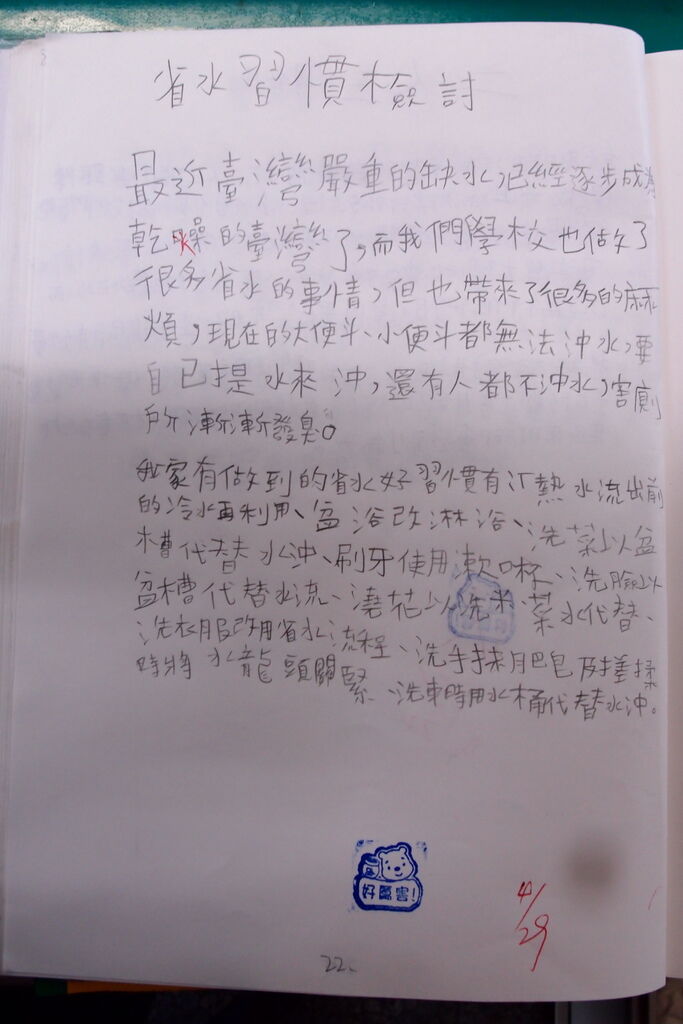 省水習慣檢討
最近臺灣嚴重的缺水,已經逐步成為
乾燥的臺灣了,而我們學校也做了
很多省水的事情,但也帶來了很多的麻
煩,現在的大便斗、小便斗都無法沖水,要
自己提水來沖,還有人都不沖水,害廁
所漸漸發臭。
我家有做到的省水好習慣有熱水流出前
的冷水再利用、盆浴改淋浴、洗菜以盆
槽代替水沖、刷牙使用漱口杯、洗臉以
盆槽代替水流、澆花以洗米、菜水代替、
洗衣服改用省水流程、洗手抹肥皂及搓揉
時將水龍頭關緊、洗車時用水桶代替水沖。
好厲害!
4/29
22